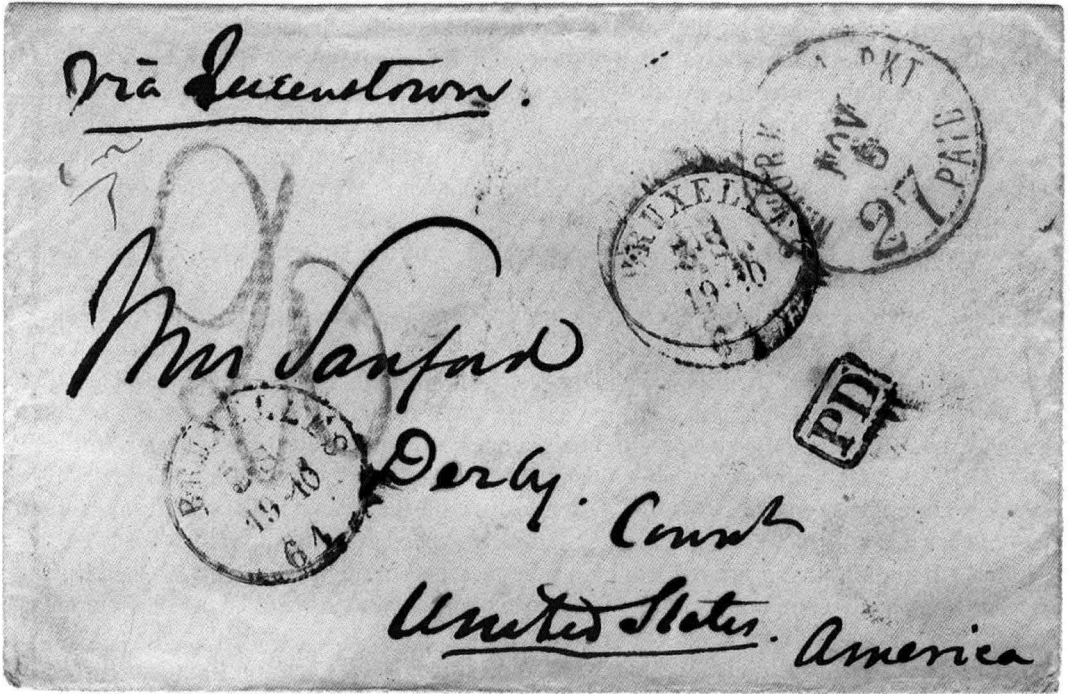 via Queenstown.
PKT
PAID
NOV
27
BRUXELLES
19-10
PD
Mrs Sanford
BRUXELLES
19-10
61
Derby. Connt
United States. America